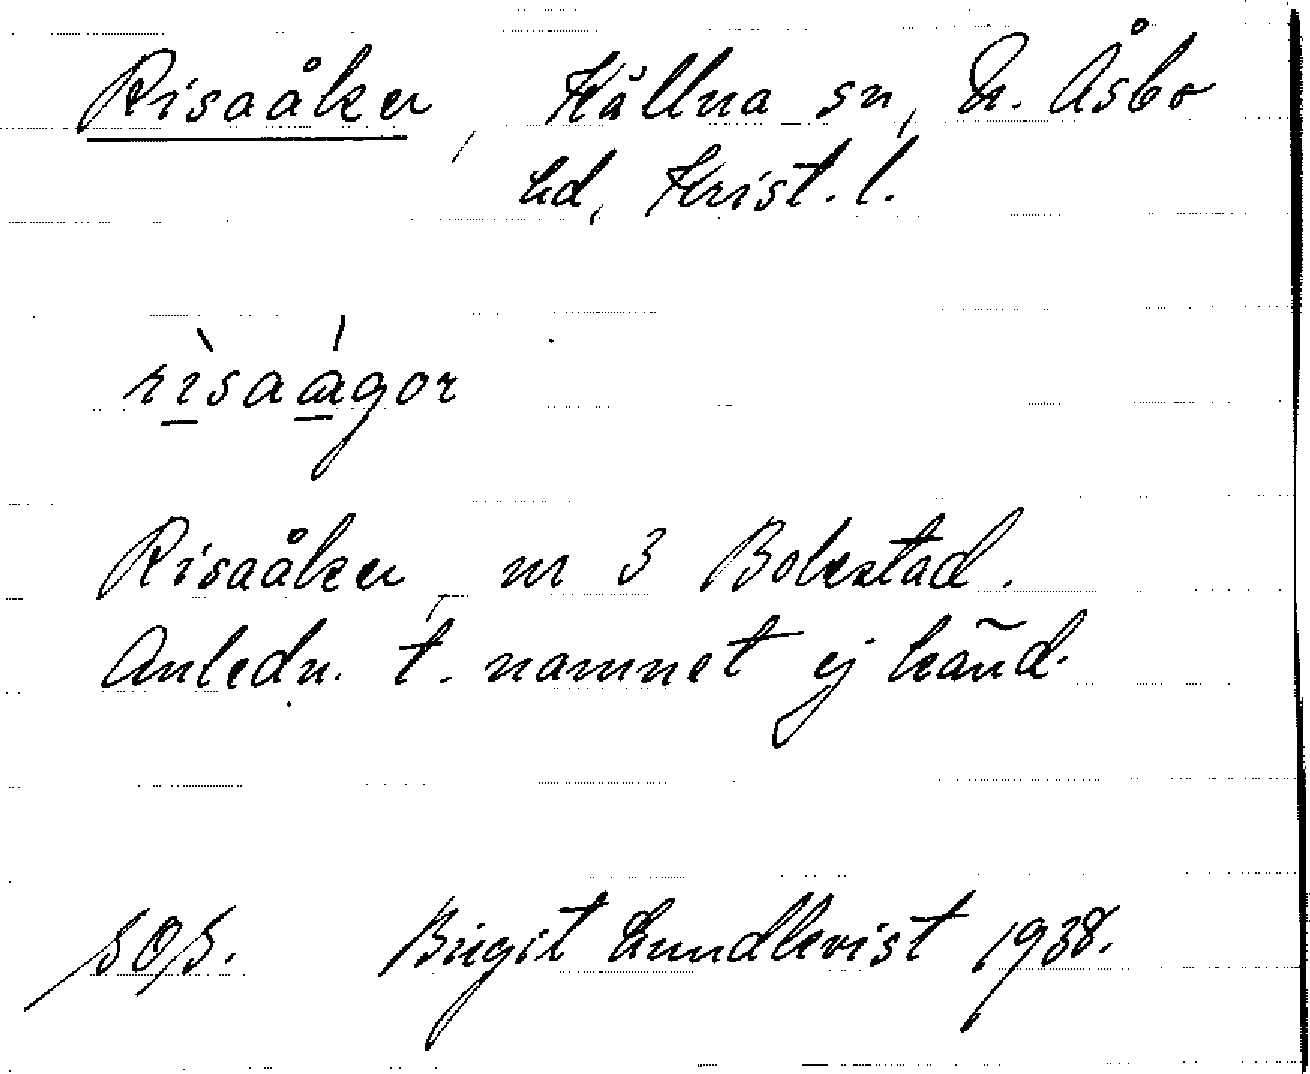 Risaåker, Källna sn, N. Åsbo
hd, Krist. l.
rìsaágor
Risaåker, nr 3 Bokestad.
Anledn. t. namnet ej känd.
Birgit Lundkvist 1938.